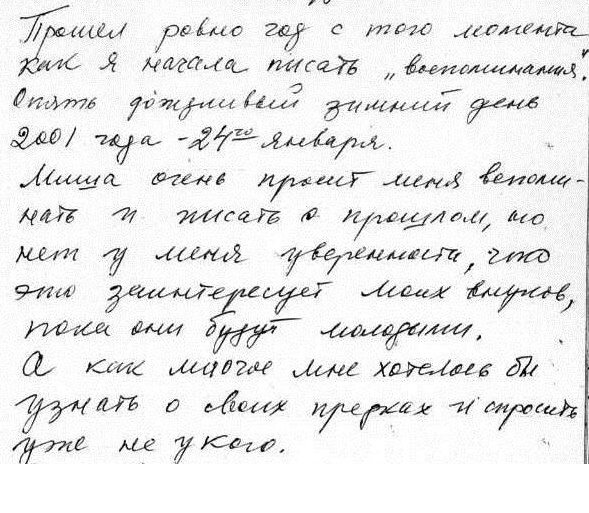 Прошел ровно год с того момента
как я начала писать „воспоминания".
Опять дождливый зимний день
2001 года - 24го января.
Миша очень просит меня вспоми-
нать и писать о прошлом, но
нет у меня уверенности, что
это заинтересует моих внуков,
пока они будут молодыми.
А как многое мне хотелось бы
узнать о своих предках и спросить
уже не у кого.